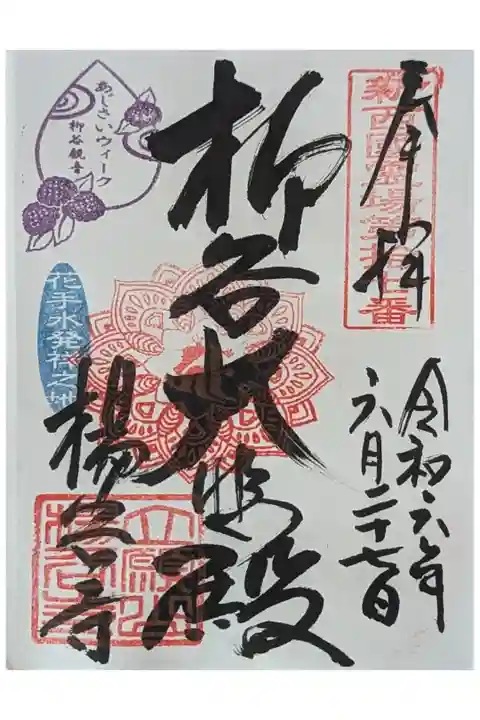 奉拝
新西国霊場第拾七番
令和六年
六月二十七日
柳谷大悲殿
楊谷寺
あじさいウィーク
柳谷観音
花手水発祥之地